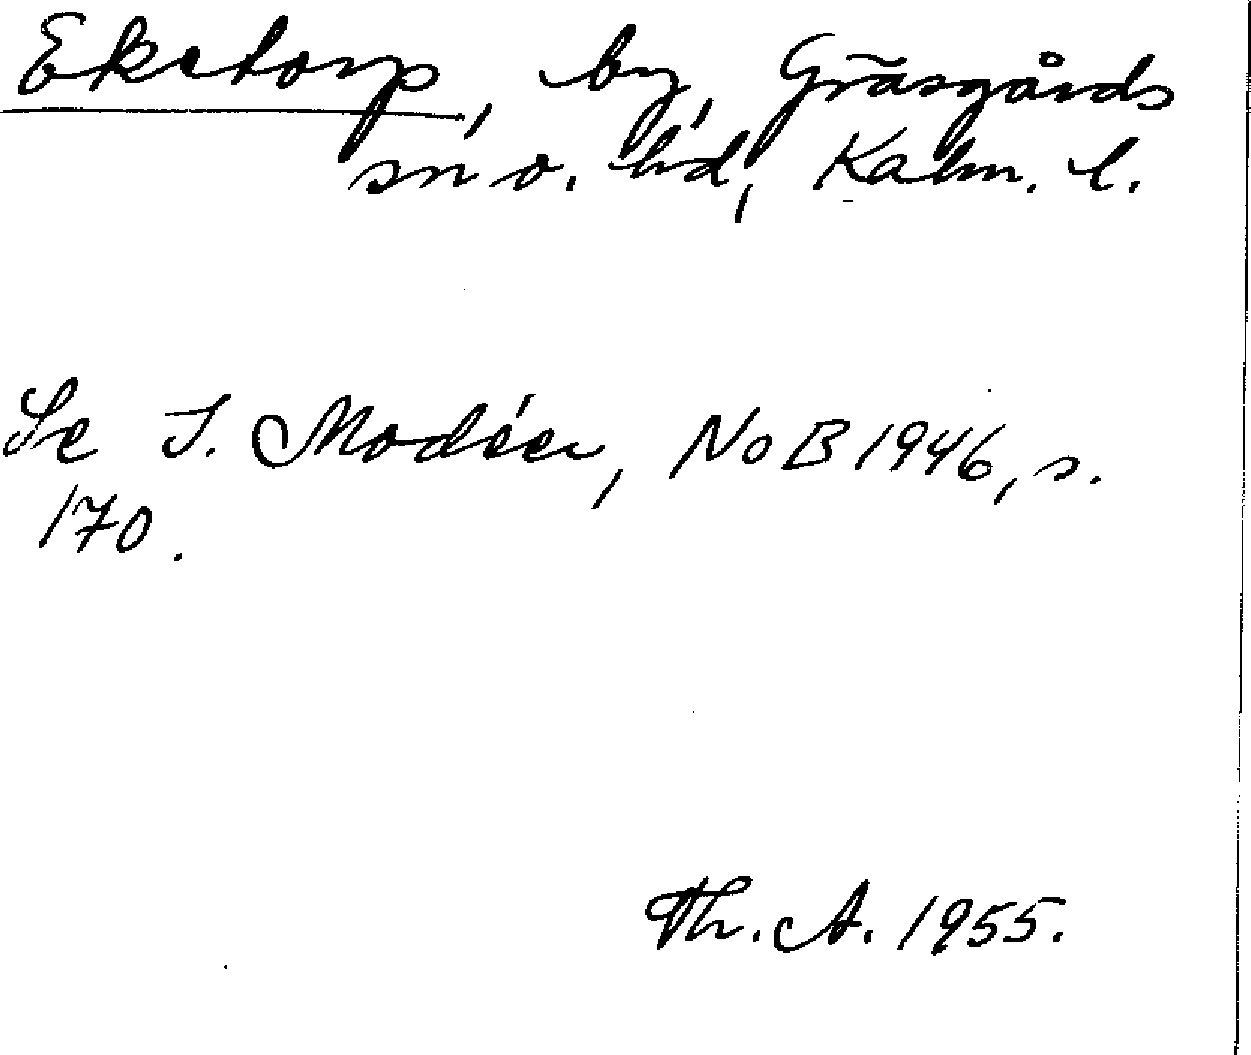 Eketorp, by, Gräsgårds
sn o. hd, Kalm. l.
Se I. Modéer, NoB 1946, s.
170.
Th. A. 1955.